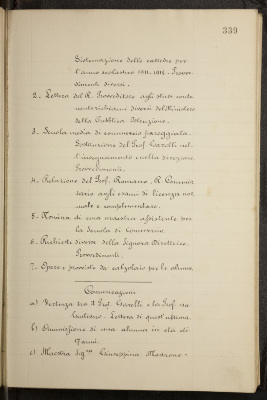 339
Sistemazione delle cattedre per
l'anno scolastico 1911-1912. Provve-
dimenti diversi.
2. Lettera del R. Provveditore agli studi conte-
nente richiami diversi del Ministero
della Pubblica Istruzione.
3. Scuola media di commercio pareggiata.
Sostituzione del Prof. Garelli nel-
l'insegnamento e nella direzione.
Provvedimenti.
4. Relazione del Prof. Romano, R. Commis-
sario agli esami di licenza nor-
male e complementare.
5. Nomina di una maestra assistente per
la Scuola di
6. Richieste diverse della Signora Direttrice.
Provvedimenti.
7. Opere e provviste da calzolaio per le alunne.
Comunicazioni
a) Vertenza tra il Prof. Garelli e la Prof.
Lettera di quest'ultima.
b) Ammissione di una alunna in età di
7 anni.
c) Maestra Sig.na Giuseppina